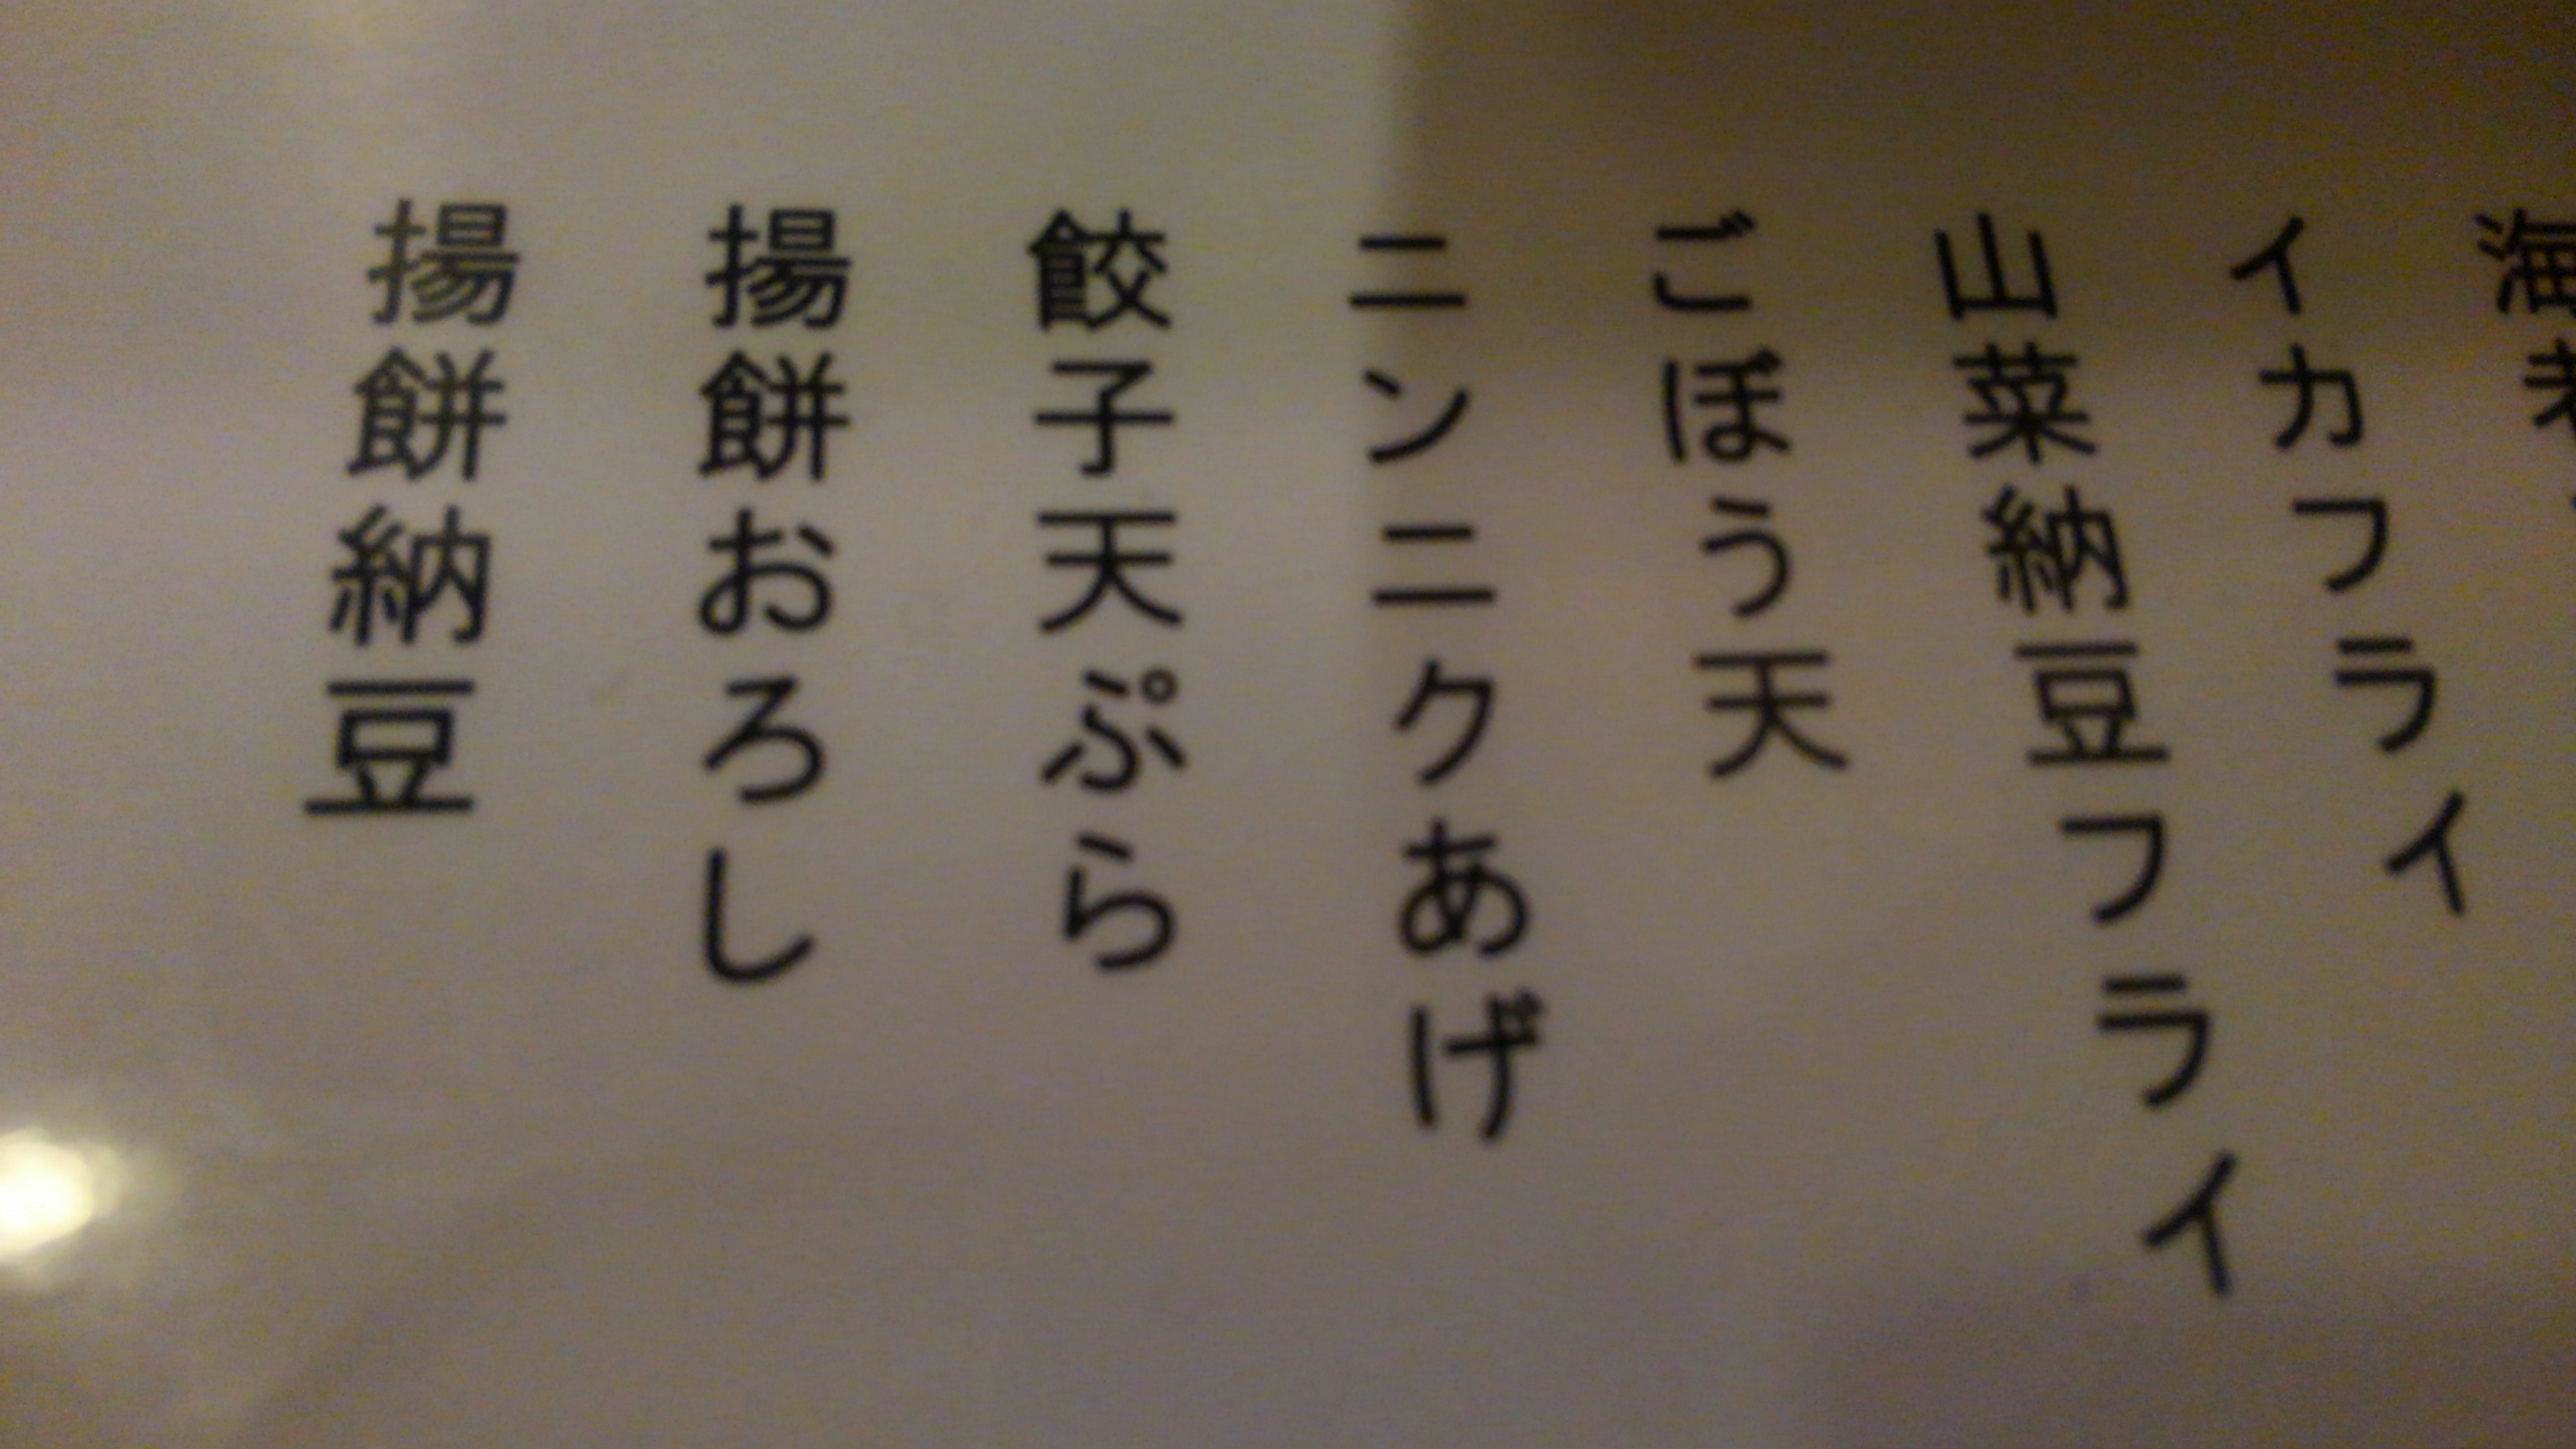 海老
イカフライ
山菜納豆フライ
ごぼう天
ニンニクあげ
餃子天ぷら
揚餅おろし
揚餅納豆